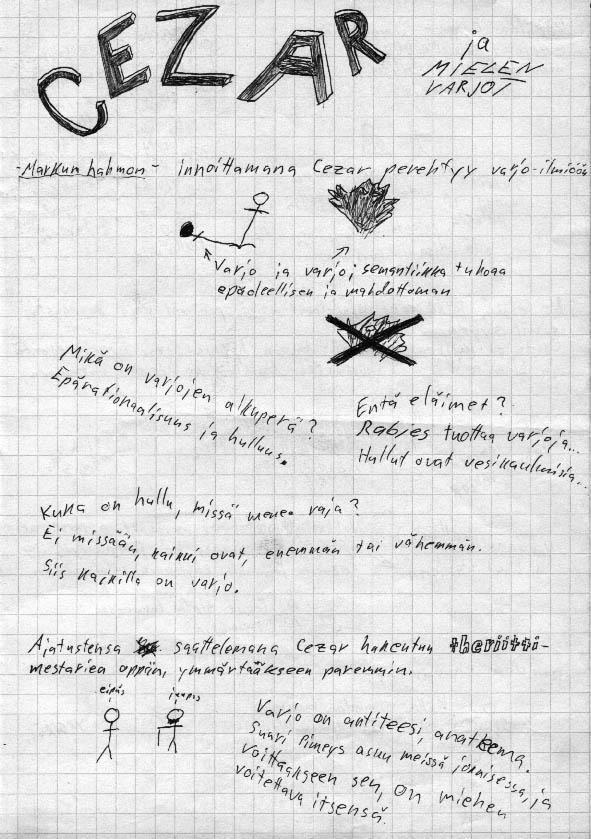 CEZAR
ja
MIELEN
VARJOT
-Markun hahmon- innoittamana Cezar perehtyy varjo-ilmiöön
Varjo ja varjo; semantiikka tuhoaa
epäedellisen ja mahdottoman
Mikä on varjojen alkuperä?
Epärationaalisuus ja hulluus.
Entä eläimet?
Rabies tuottaa varjoja...
Hullut ovat vesikauhuisia...
Kuka on hullu, missä menee raja?
Ei missään, kaikki ovat, enemmän tai vähemmän.
Siis kaikilla on varjo.
Ajatustensa saattelemana Cezar hakeutuu theriitti-
mestarien oppiin, ymmärtääkseen paremmin.
Varjo on antiteesi, anateema.
Suuri pimeys asuu meissä jokaisessa, ja
voittaakseen sen, on miehen
voitettava itsensä.